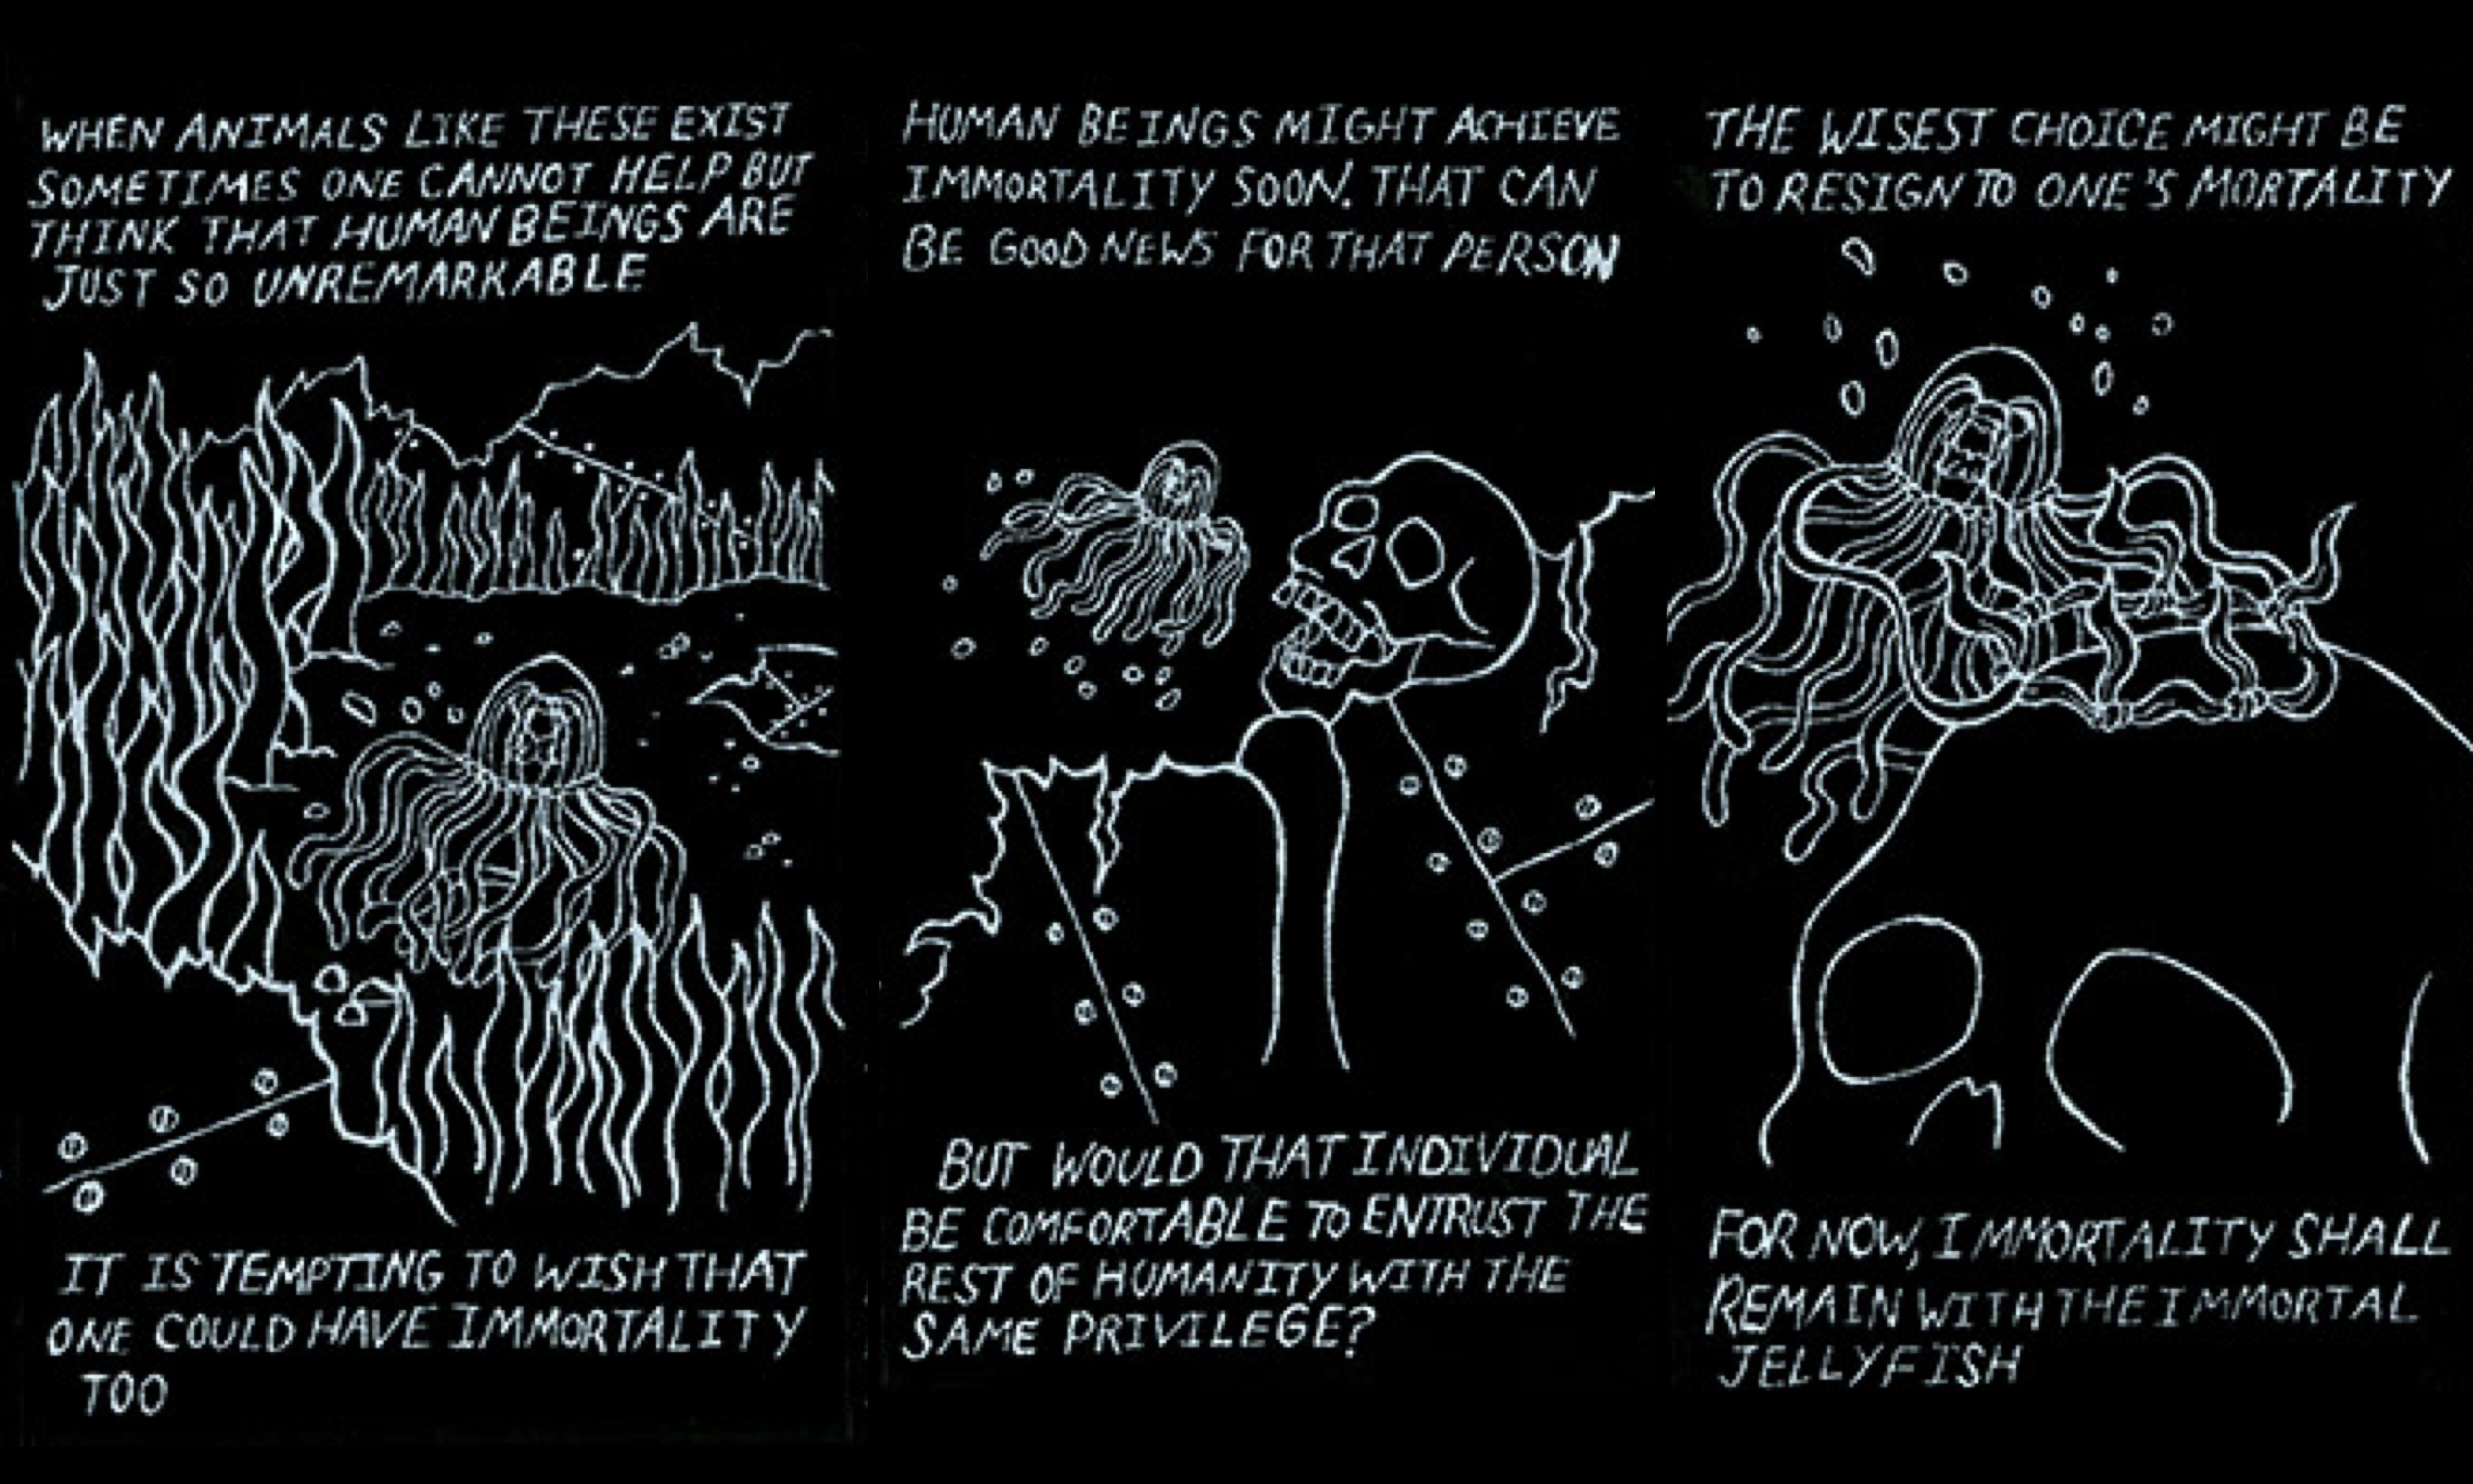 WHEN ANIMALS LIKE THESE EXIST
SOMETIMES ONE CANNOT HELP BUT
THINK THAT HUMAN BEINGS ARE
JUST SO UNREMARKABLE
IT IS TEMPTING TO WISH THAT
ONE COULD HAVE IMMORTALITY
TOO
HUMAN BEINGS MIGHT ACHIEVE
IMMORTALITY SOON. THAT CAN
BE GOOD NEWS FOR THAT PERSON
BUT WOULD THAT INDIVIDUAL
BE COMFORTABLE TO ENTRUST THE
REST OF HUMANITY WITH THE
SAME PRIVILEGE?
THE WISEST CHOICE MIGHT BE
TO RESIGN TO ONE'S MORTALITY
FOR NOW, IMMORTALITY SHALL
REMAIN WITH THE IMMORTAL
JELLYFISH